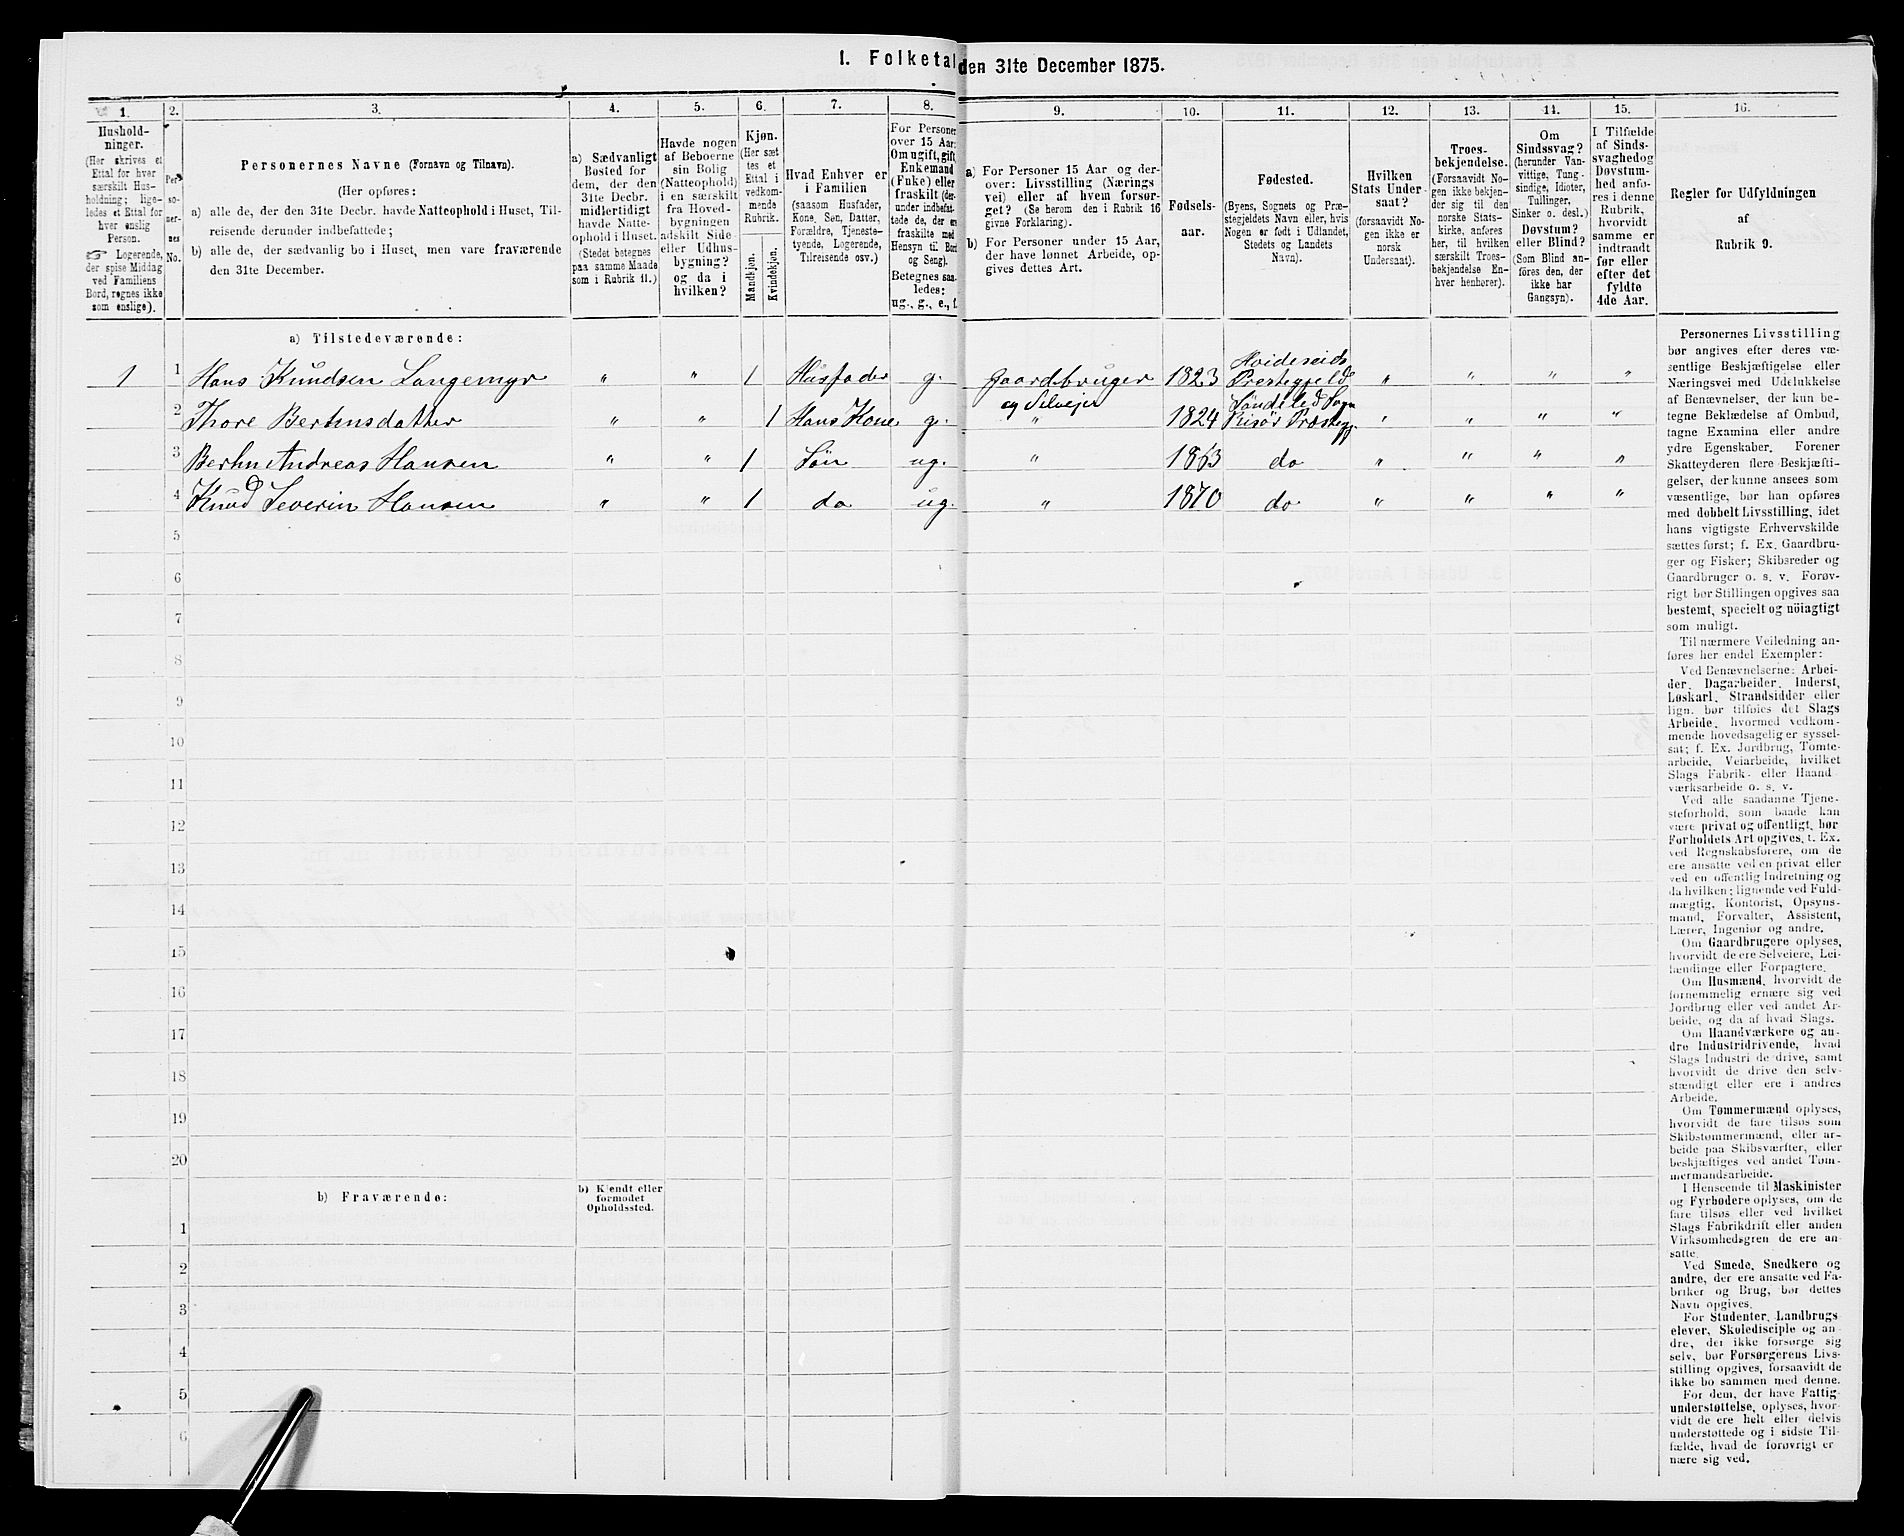 1. Folketal den 31te December 1875.
1. 2. 3. 4. 5. 6. 7. 8. 9. 10. 11. 12. 13. 14. 15. 16.
Hushold-
ninger.
(Her skrives et
Ettal for hver
særskilt Hus-
holdning; lige-
ledes et Ettal for
hver enslig
Person.
☞ Logerende,
der spise Middag
ved Familiens
Bord, regnes ikke
som enslige).
Per-
so-
ner-
nes
No.
Personernes Navne (Fornavn og Tilnavn).
(Her opføres:
a) alle de, der den 31te Decbr. havde Natteophold i Huset, Til-
reisende derunder indbefattede;
b) alle de, der sædvanlig bo i Huset, men vare fraværende
den 31te December.
a) Sædvanligt
Bosted for
dem, der den
31te Decbr.
midlertidigt
havde Natte-
ophold i Huset.
(Stedet betegnes
paa samme Maade
som i Rubrik 11.)
Havde nogen
af Beboerne
sin Bolig
(Natteophold)
i en særskilt
fra Hoved-
bygningen
adskilt Side-
eller Udhus-
bygning?
og da i
hvilken?
Kjøn.
(Her sæt
tes et
Ettal i
vedkom-
mende
Rubrik.
Mandkjøn.
Kvindekjøn.
Hvad Enhver er
i Familien
(saasom Husfader,
Kone, Søn, Datter,
Forældre, Tjeneste-
tyende, Logerende,
Tilreisende osv.)
For Personer
over 15 Aar:
Om ugift, gift,
Enkemand
(Enke) eller
fraskilt (der-
under indbefat-
tede de, der ere
fraskilte med
Hensyn til Bord
og Seng).
Betegnes saa-
ledes:
ug., g., e., f.
a) For Personer 15 Aar og der-
over: Livsstilling (Nærings
vei) eller af hvem forsør-
get? (Se herom den i Rubrik 16
givne Forklaring).
b) For Personer under 15 Aar,
der have lønnet Arbeide, op-
gives dettes Art.
Fødsels-
aar.
Fødested.
(Byens, Sognets og Præ-
stegjeldets Navn eller, hvis
Nogen er født i Udlandet,
Stedets og Landets
Navn).
Hvilken
Stats Under-
saat?
(forsaavidt No-
gen ikke er
norsk
Undersaat).
Troes-
bekjendelse.
(Forsaavidt No-
gen ikke bekjen-
der sig til den
norske Stats-
kirke, anføres
her, til hvilken
særskilt Troes-
bekjendelse En-
hver henhører).
Om
Sindssvag?
(herunder Van-
vittige, Tung-
sindige, Idioter,
Tullinger,
Sinker o. desl.)
Døvstum?
eller Blind?
(Som Blind an-
føres den, der
ikke har
Gangsyn).
I Tilfælde
af Sinds-
svaghed og
Døvstum-
hed anfø-
res i denne
Rubrik,
hvorvidt
samme er
indtraadt
før eller
efter det
fyldte
4de Aar.
Regler for Udfyldningen
af
Rubrik 9.
a) Tilstedeværende:
1 1 Hans Knudsen Langemyr " " 1 Husfader g. Gaardbruger og Selvejer 1823 Hvideseids Prestegjeld " " " "
2 Thore Berthusdatter " " 1 Hans Kone g. " 1824 Søndeled Sogn Risør Præstegj. " " " "
3 Berthn Andreas Hansen " " 1 Søn ug. " 1863 do " " " "
4 Knud Severin Hansen " " 1 do ug. " 1870 do " " " "
5
6
7
8
9
10
11
12
13
14
15
16
17
18
19
20
b) Fraværende:
b) Kjendt eller
formodet
Opholdssted.
1
2
3
4
5
6
Personernes Livsstilling
bør angives efter deres væ-
sentlige Beskjæftigelse eller
Næringsvei med Udelukkelse
af Benævnelser, der kun be-
tegne Beklædelse af Ombud,
tagne Examina eller andre
ydre Egenskaber. Forener
Skatteyderen flere Beskjæfti-
gelser, der kunne ansees som
væsentlige, bør han opføres
med dobbelt Livsstilling, idet
hans vigtigste Erhvervskilde
sættes først; f. Ex. Gaardbru-
ger og Fisker; Skibsreder og
Gaardbruger o. s. v. Forøv-
rigt bør Stillingen opgives saa
bestemt, specielt og nöiagtigt
som muligt.
Til nærmere Veiledning an-
føres her endel Exempler:
Ved Benævnelserne: Arbei-
der, Dagarbeider, Inderst,
Løskarl, Strandsidder eller
lign. bør tilføies det Slags
Arbeide, hvormed vedkom-
mende hovedsagelig er syssel-
sat; f. Ex. Jordbrug, Tomte-
arbeide, Veiarbeide, hvilket
Slags Fabrik- eller Haand-
værksarbeide o. s. v.
Ved alle saadanne Tjene-
steforhold, som baade kan
være privat og offentligt, bør
Forholdets Art opgives, f. Ex.
ved Regnskabsførere, om de
ere ansatte ved en privat eller
ved en offentlig Indretning og
da hvilken; lignende ved Fuld-
mægtig, Kontorist, Opsyns-
mand, Forvalter, Assistent,
Lærer, Ingeniør og andre.
Om Gaardbrugere oplyses,
hvorvidt de ere Selveiere, Lei-
lændinge eller Forpagtere.
Om Husmænd, hvorvidt de
fornemmelig ernære sig ved
Jordbrug eller ved andet Ar-
beide, og da af hvad Slags.
Om Haandværkere og an-
dre Industridrivende, hvad
Slags Industri de drive, samt
hvorvidt de drive den selv-
stændigt eller ere i andres
Arbeide.
Om Tømmermænd oplyses,
hvorvidt de fare tilsøs som
Skibstømmermænd, eller ar-
beide paa Skibsværfter, eller
beskjæftiges ved andet Tøm-
mermandsarbeide.
I Henseende til Maskinister
og Fyrbødere oplyses, om de
fare tilsøs eller ved hvilket
Slags Fabrikdrift eller anden
Virksomhedsgren de ere an-
satte.
Ved Smede, Snedkere og
andre, der ere ansatte ved Fa-
briker og Brug, bør dettes
Navn opgives.
For Studenter, Landbrugs-
elever, Skoledisciple og an-
dre, der ikke forsørge sig
selv, bør Forsørgerens Livs-
stilling opgives, forsaavidt de
ikke bo sammen med denne.
For dem, der have Fattig-
understøttelse, oplyses, hvor-
vidt de ere helt eller delvis
understøttede og i sidste Til-
fælde, hvad de forøvrigt er-
nære sig ved.